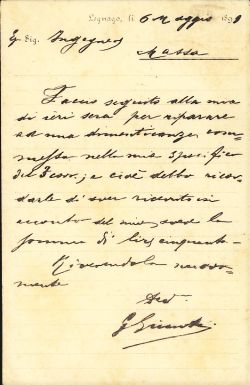 Legnago, li 6 Maggio 1899
Sig. Ingegner
Massa
Faccio seguito alla mia
di ieri sera per riparare
ad una dimenticanza com-
messa nella mia specifica
e cioè debbo ricor-
darle di aver ricevuto in
acconto del mio avere la
somma di lire cinquanta.
Riverendola
mente
Dev.